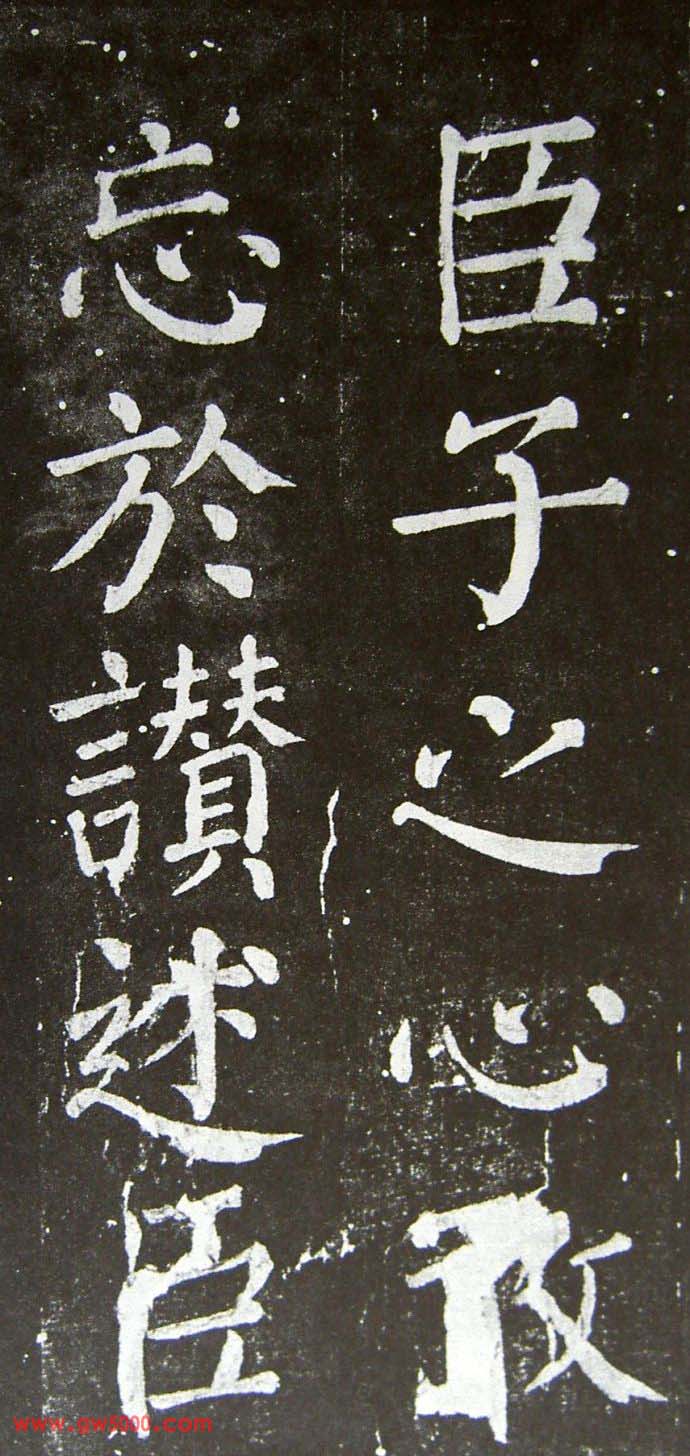 臣子之心敢
忘於讃述臣
www.gwf000.com